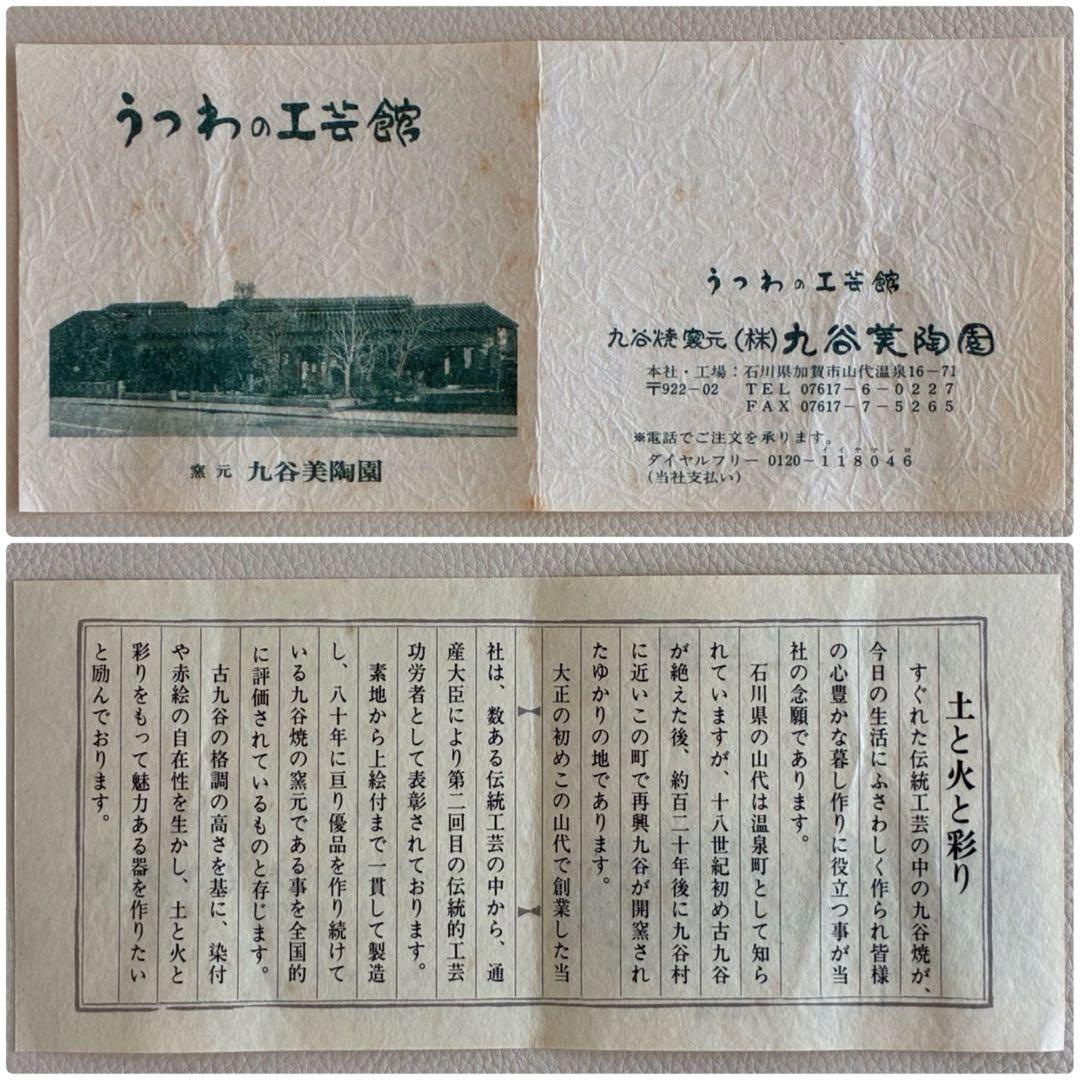 うつわの工芸館
窯元 九谷美陶園
うつわの工芸館
九谷焼窯元(株)九谷美陶園
本社・工場:石川県加賀市山代温泉16-71
〒922-02 TEL 07617-6-0227
FAX 07617-7-5265
※電話でご注文を承ります。
イイヤマシロ
ダイヤルフリー 0120-118046
(当社支払い)
土と火と彩り
すぐれた伝統工芸の中の九谷焼が、
今日の生活にふさわしく作られ皆様
の心豊かな暮し作りに役立つ事が当
社の念願であります。
石川県の山代は温泉町として知ら
れていますが、十八世紀初め古九谷
が絶えた後、約百二十年後に九谷村
に近いこの町で再興九谷が開窯され
たゆかりの地であります。
大正の初めこの山代で創業した当
社は、数ある伝統工芸の中から、通
産大臣により第二回目の伝統的工芸
功労者として表彰されております。
素地から上絵付まで一貫して製造
し、八十年に亘り優品を作り続けて
いる九谷焼の窯元である事を全国的
に評価されているものと存じます。
古九谷の格調の高さを基に、染付
や赤絵の自在性を生かし、土と火と
彩りをもって魅力ある器を作りたい
と励んでおります。